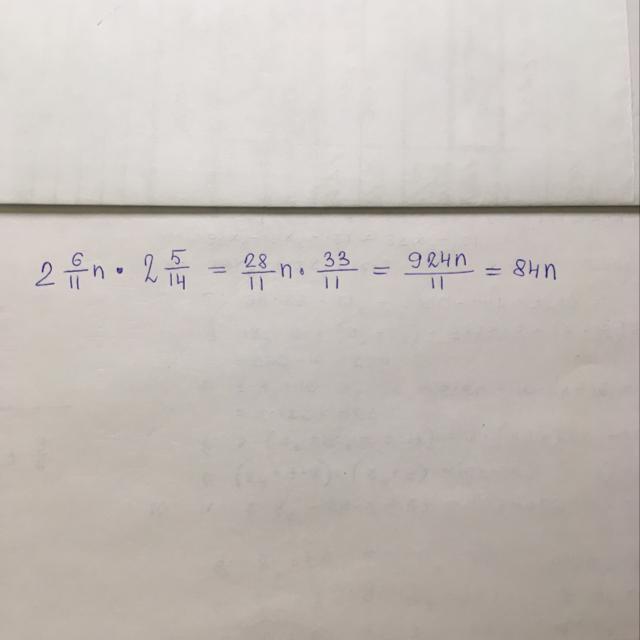 2 6/11 n · 2 5/14 = 28/11 n · 33/11 = 924n/11 = 84n